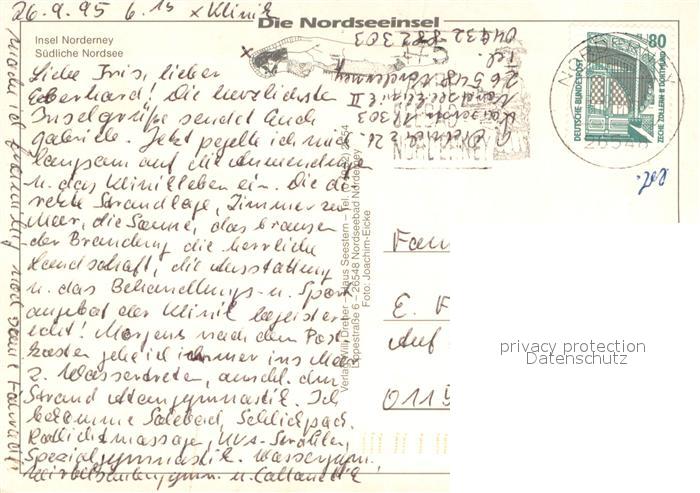 26.9.95 6.13 x Klinik
Die Nordseeinsel
Insel Norderney
Südliche Nordsee
Liebe Iris, lieber
Eberhard! Die herzlichsten
Inselgrüße sendet Euch
Gabriele. Jetzt pegelte ich mich
langsam auf die Anwendungen
u. das Klinikleben ein. Die di-
rekte Strandlage, Zimmer zum
Meer, die Sonne, das Brausen
der Brandung die herrliche
Landschaft, die Ausstattung
u. das Behandlungs- u. Sport-
angebot der Klinik begeistern
echt! Morgens nach dem Post
kasten gehe ich immer ins Meer
z. Wassertreten, anschl. dem
Strand Atemgymnastik. Ich
bekomme Solebad, Schlickpack.
Rotlichtmassage, UVA-Strahlen,
Spezialgymnastik. Wassergym.
Wirbelsäulengymn. u.
Verlag Willi Dreher – Haus Seestern – Tel. (04932) 2654
Lippestraße 6 – 26548 Nordseebad Norderney
Foto: Joachim-Eicke
Klinik II
26548 Norderney
Tel.
04932 882 303
NORDERNEY
26548
80
DEUTSCHE BUNDESPOST
ZECHE ZOLLERN II DORTMUND
Fam
E. F
Auf
0119
privacy protection
Datenschutz